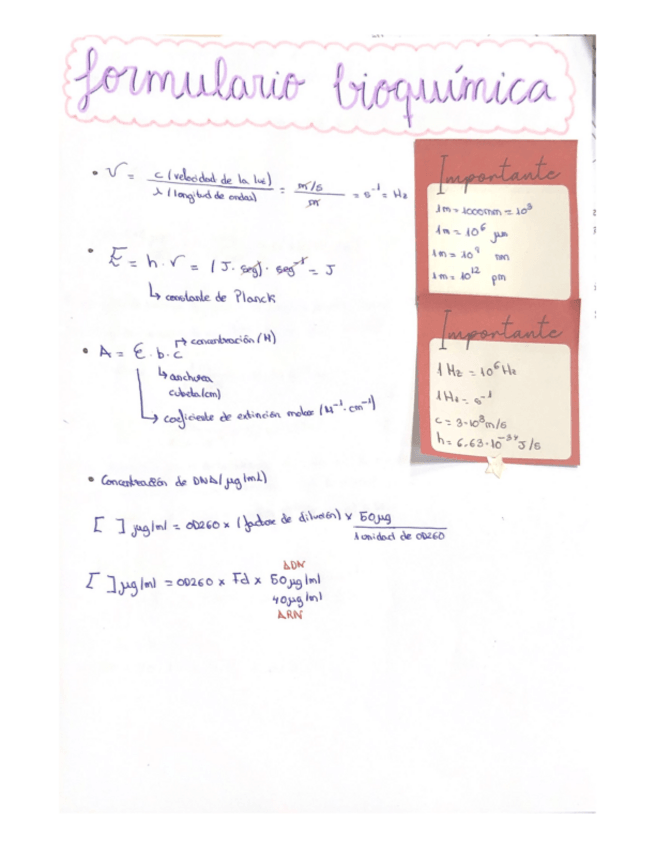 formulario bioquímica
• V = c (velocidad de la luz) / λ (longitud de onda) = m/s / m = s⁻¹ = Hz
• E = h · V = (J · seg) · seg⁻¹ = J
↳ constante de Planck
• A = Ɛ · b · c → concentración (M)
↳ anchura
cubeta (cm)
↳ coeficiente de extinción molar (M⁻¹ · cm⁻¹)
• Concentración de DNA (µg/mL)
[ ] µg/ml = OD260 x (factor de dilución) x 50µg / 1 unidad de OD260
[ ] µg/ml = OD260 x Fd x 50µg/ml
ADN
40µg/ml
ARN
Importante
1m = 1000mm = 10³
1m = 10⁶ µm
1m = 10⁹ nm
1m = 10¹² pm
Importante
1 Hz = 10⁶ Hz
1Hz = s⁻¹
c = 3·10⁸ m/s
h = 6,63·10⁻³⁴ J/s